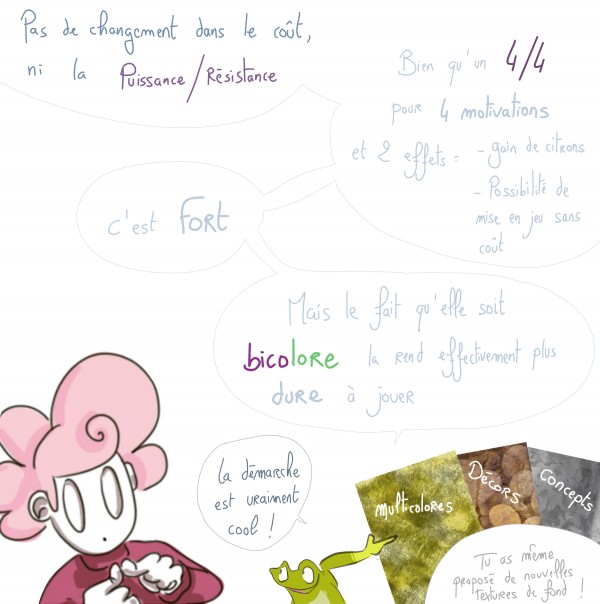 Pas de changement dans le coût,
ni la Puissance/Résistance
Bien qu'un 4/4
pour 4 motivations
et 2 effets : - gain de citrons
- Possibilité de
mise en jeu sans
coût
c'est FORT
Mais le fait qu'elle soit
bicolore la rend effectivement plus
dure à jouer
la démarche
est vraiment
cool !
multicolores
Décors
Concepts
Tu as même
proposé de nouvelles
textures de fond !